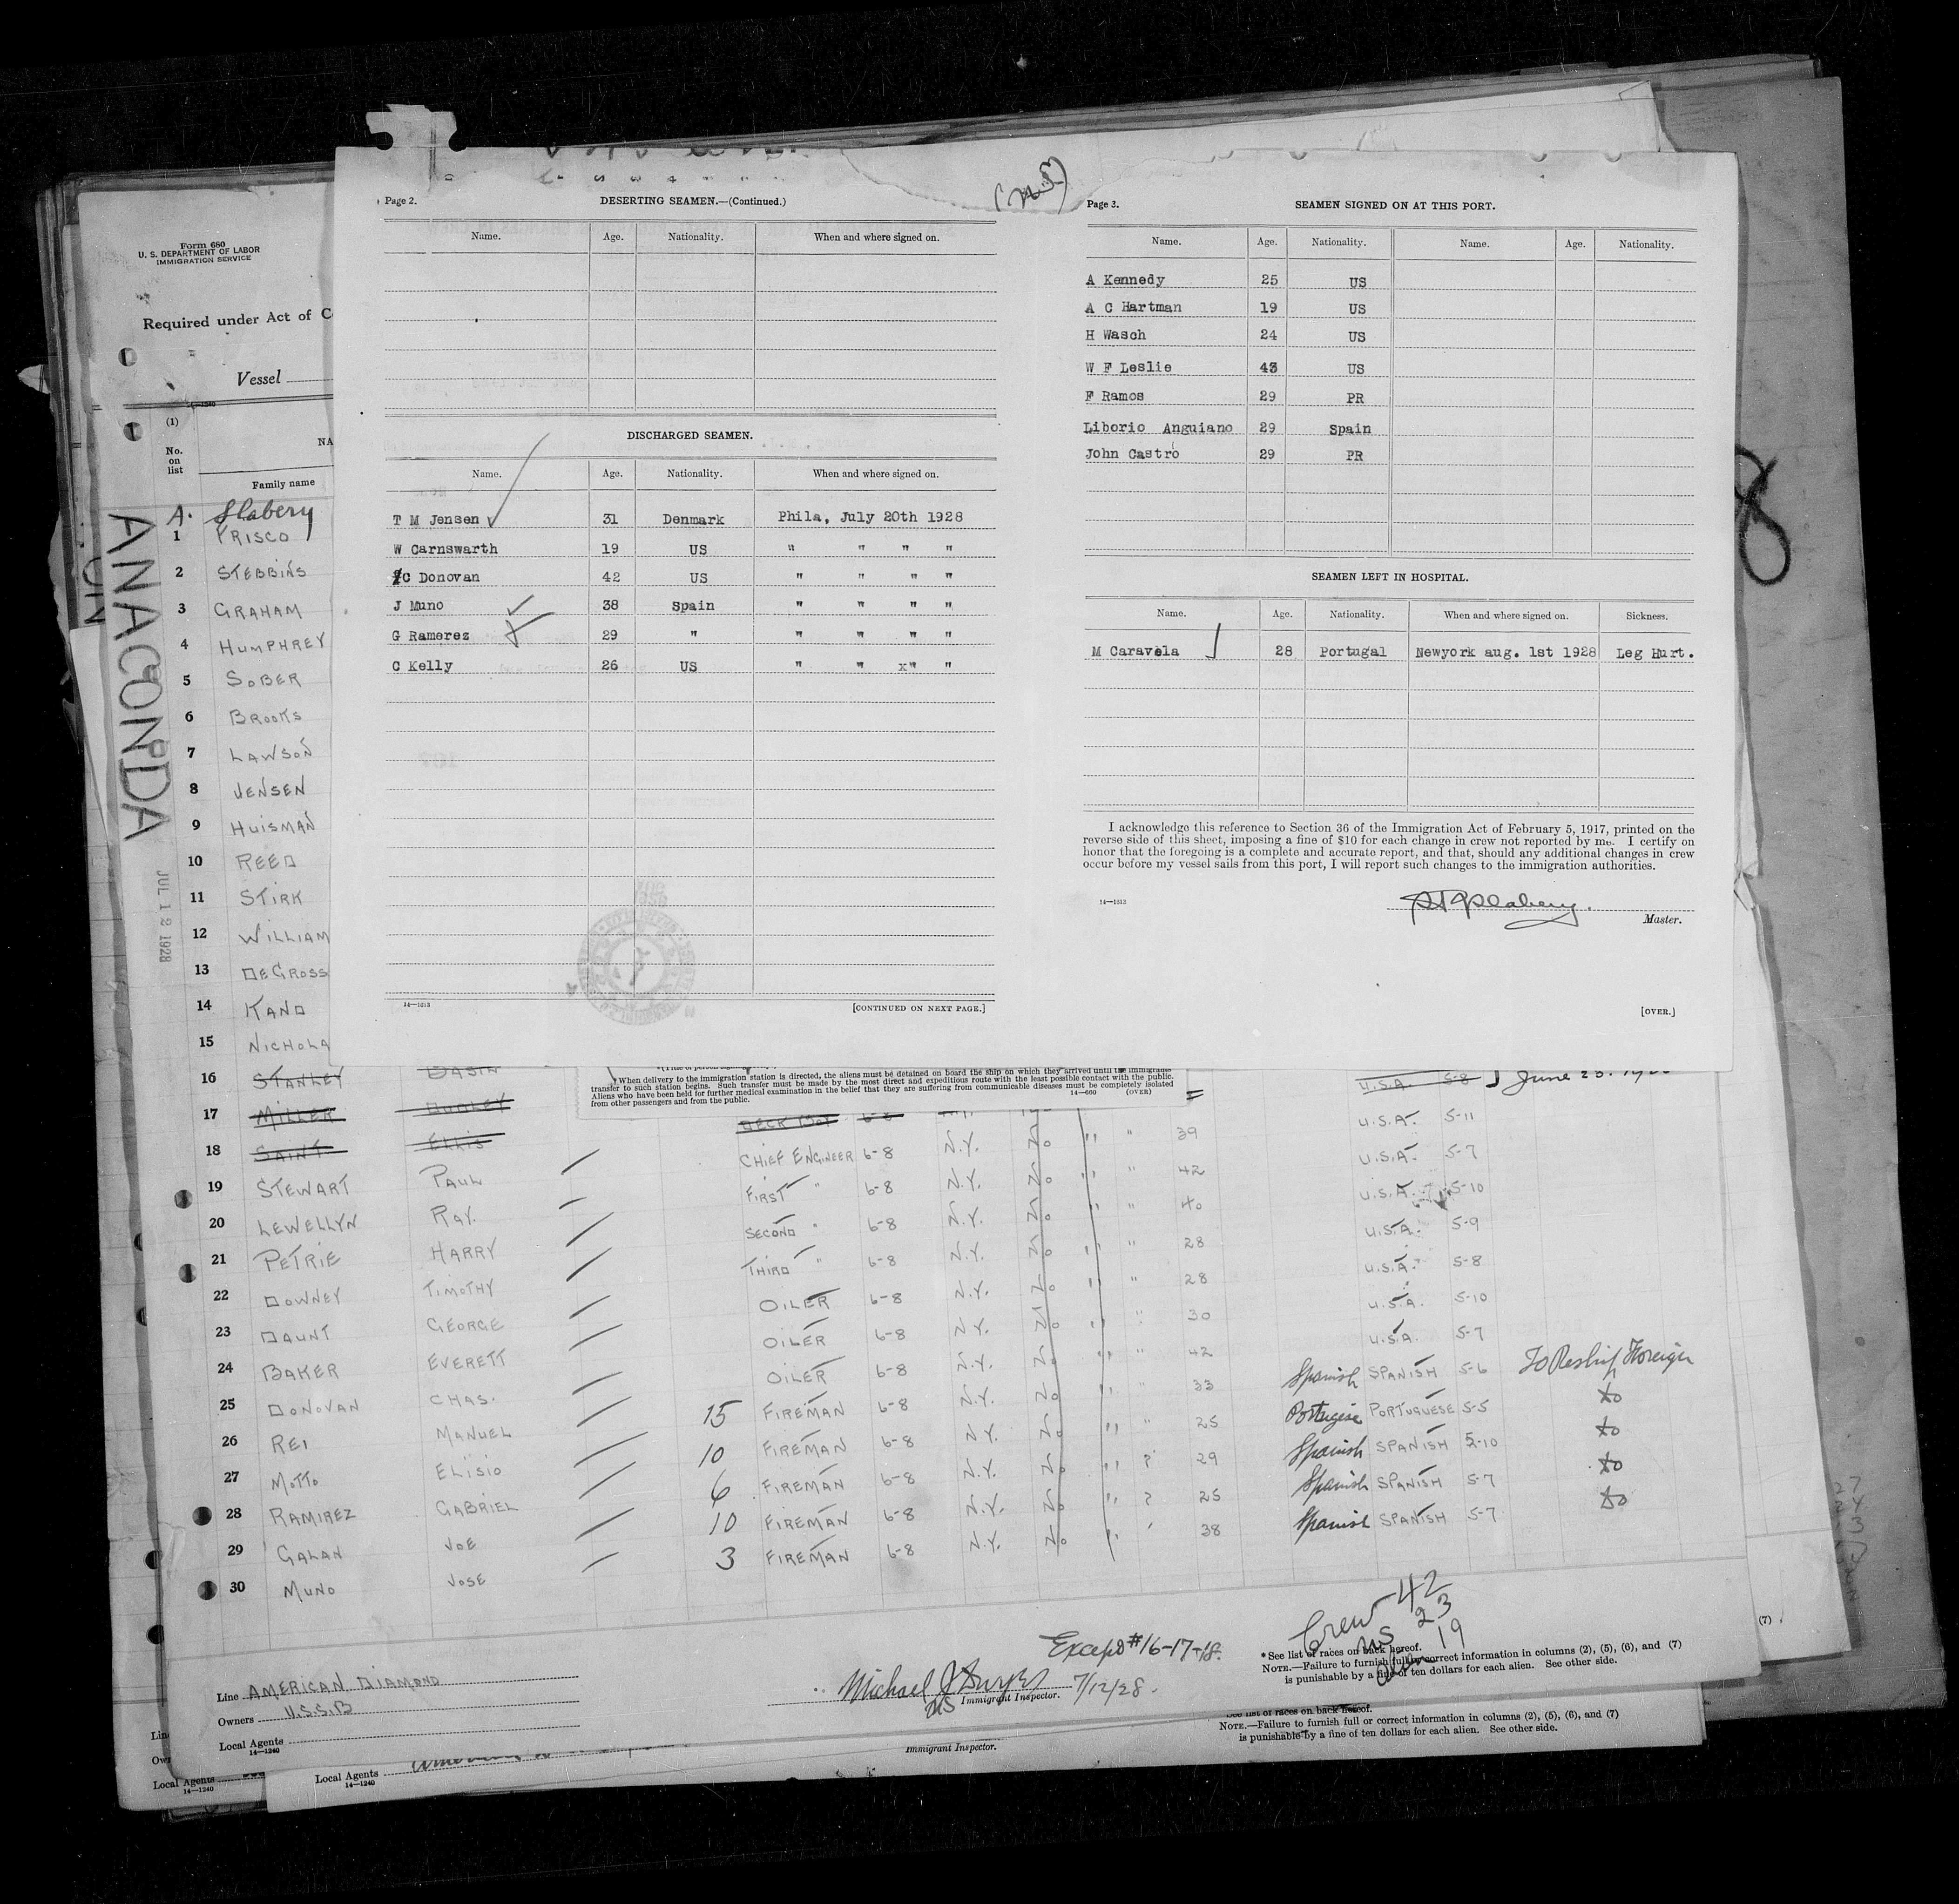 Page 2.
DESERTING SEAMEN.—(Continued.)
Name. Age. Nationality. When and where signed on.
DISCHARGED SEAMEN.
Name. Age. Nationality. When and where signed on.
T M Jensen 31 Denmark Phila, July 20th 1928
W Carnswarth 19 US " " " "
C Donovan 42 US " " " "
J Muno 38 Spain " " " "
G Ramerez 29 " " " " "
C Kelly 26 US " " x" "
14—1513
[CONTINUED ON NEXT PAGE.]
Page 3.
SEAMEN SIGNED ON AT THIS PORT.
Name. Age. Nationality. Name. Age. Nationality.
A Kennedy 25 US
A C Hartman 19 US
H Wasch 24 US
W F Leslie 43 US
F Ramos 29 PR
Liborio Anguiano 29 Spain
John Castro 29 PR
SEAMEN LEFT IN HOSPITAL.
Name. Age. Nationality. When and where signed on. Sickness.
M Caravela 28 Portugal Newyork aug. 1st 1928 Leg Hurt.
I acknowledge this reference to Section 36 of the Immigration Act of February 5, 1917, printed on the
reverse side of this sheet, imposing a fine of $10 for each change in crew not reported by me. I certify on
honor that the foregoing is a complete and accurate report, and that, should any additional changes in crew
occur before my vessel sails from this port, I will report such changes to the immigration authorities.
14—1513
Master.
[OVER.]
Form 680
U. S. DEPARTMENT OF LABOR
IMMIGRATION SERVICE
Required under Act of C
Vessel
14—1240
(1)
No.
on
list
NA
Family name
ANACONDA
JUL 12 1928
A. Slabery
1 PRISCO
2 STEBBINS
3 GRAHAM
4 HUMPHREY
5 SOBER
6 BROOKS
7 LAWSON
8 JENSEN
9 HUISMAN
10 REED
11 STIRK
12 WILLIAM
13 DEGROSS
14 KAND
15 NICHOLA
16 STANLEY BASIN U.S.A. 5-8
17 MILLER BURLEY DECK BOY 6-8
18 SAINT ELLIS
19 STEWART PAUL CHIEF ENGINEER 6-8 N.Y. No " " 39 U.S.A. 5-11
20 LEWELLYN RAY. FIRST " 6-8 N.Y. No " " 42 U.S.A. 5-7
21 PETRIE HARRY SECOND " 6-8 N.Y. No " " 40 U.S.A. 5-10
22 DOWNEY TIMOTHY THIRD " 6-8 N.Y. No " " 28 U.S.A. 5-9
23 DAUNT GEORGE OILER 6-8 N.Y. No " " 28 U.S.A. 5-8
24 BAKER EVERETT OILER 6-8 N.Y. No " " 30 U.S.A. 5-10
25 DONOVAN CHAS. OILER 6-8 N.Y. No " " 42 U.S.A. 5-7
26 REI MANUEL 15 FIREMAN 6-8 N.Y. No " " 33 Spanish SPANISH 5-6 To Reship Foreign
27 MOTTO ELISIO 10 FIREMAN 6-8 N.Y. No " " 25 Portugese PORTUGUESE 5-5 do
28 RAMIREZ GABRIEL 6 FIREMAN 6-8 N.Y. No " " 29 Spanish SPANISH 5-10 do
29 GALAN JOE 10 FIREMAN 6-8 N.Y. No " " 25 Spanish SPANISH 5-7 do
30 MUNO JOSE 3 FIREMAN 6-8 N.Y. No " " 38 Spanish SPANISH 5-7 do
When delivery to the immigration station is directed, the aliens must be detained on board the ship on which they arrived until the immigrants
transfer to such station begins. Such transfer must be made by the most direct and expeditious route with the least possible contact with the public.
Aliens who have been held for further medical examination in the belief that they are suffering from communicable diseases must be completely isolated
from other passengers and from the public.
14—660 (OVER)
Crew 42
US 23
19
Except #16-17-18.
Line AMERICAN DIAMOND
Owners U.S.S.B
Local Agents
14—1240
Michael J Dwyer 7/12/28.
Immigrant Inspector.
* See list of races on back hereof.
NOTE.—Failure to furnish full or correct information in columns (2), (5), (6), and (7)
is punishable by a fine of ten dollars for each alien. See other side.
See list of races on back hereof.
NOTE.—Failure to furnish full or correct information in columns (2), (5), (6), and (7)
is punishable by a fine of ten dollars for each alien. See other side.
Immigrant Inspector.
Local Agents
14—1240
Local Agents
14—1240
(7)